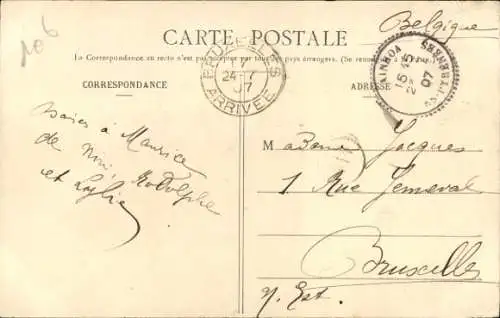 106
Belgique
CARTE POSTALE
La Correspondance au recto n'est pas acceptée par tous les pays étrangers. (Se renseigner à la Poste)
CORRESPONDANCE
ADRESSE
BRUXELLES
24-7
07
ARRIVÉE
AINHOA
15 35
07
Baisers à Maurice
de Nini Rodolphe
et
Madame Jacques
1 Rue Jemeval
Bruxelles
N. Est.